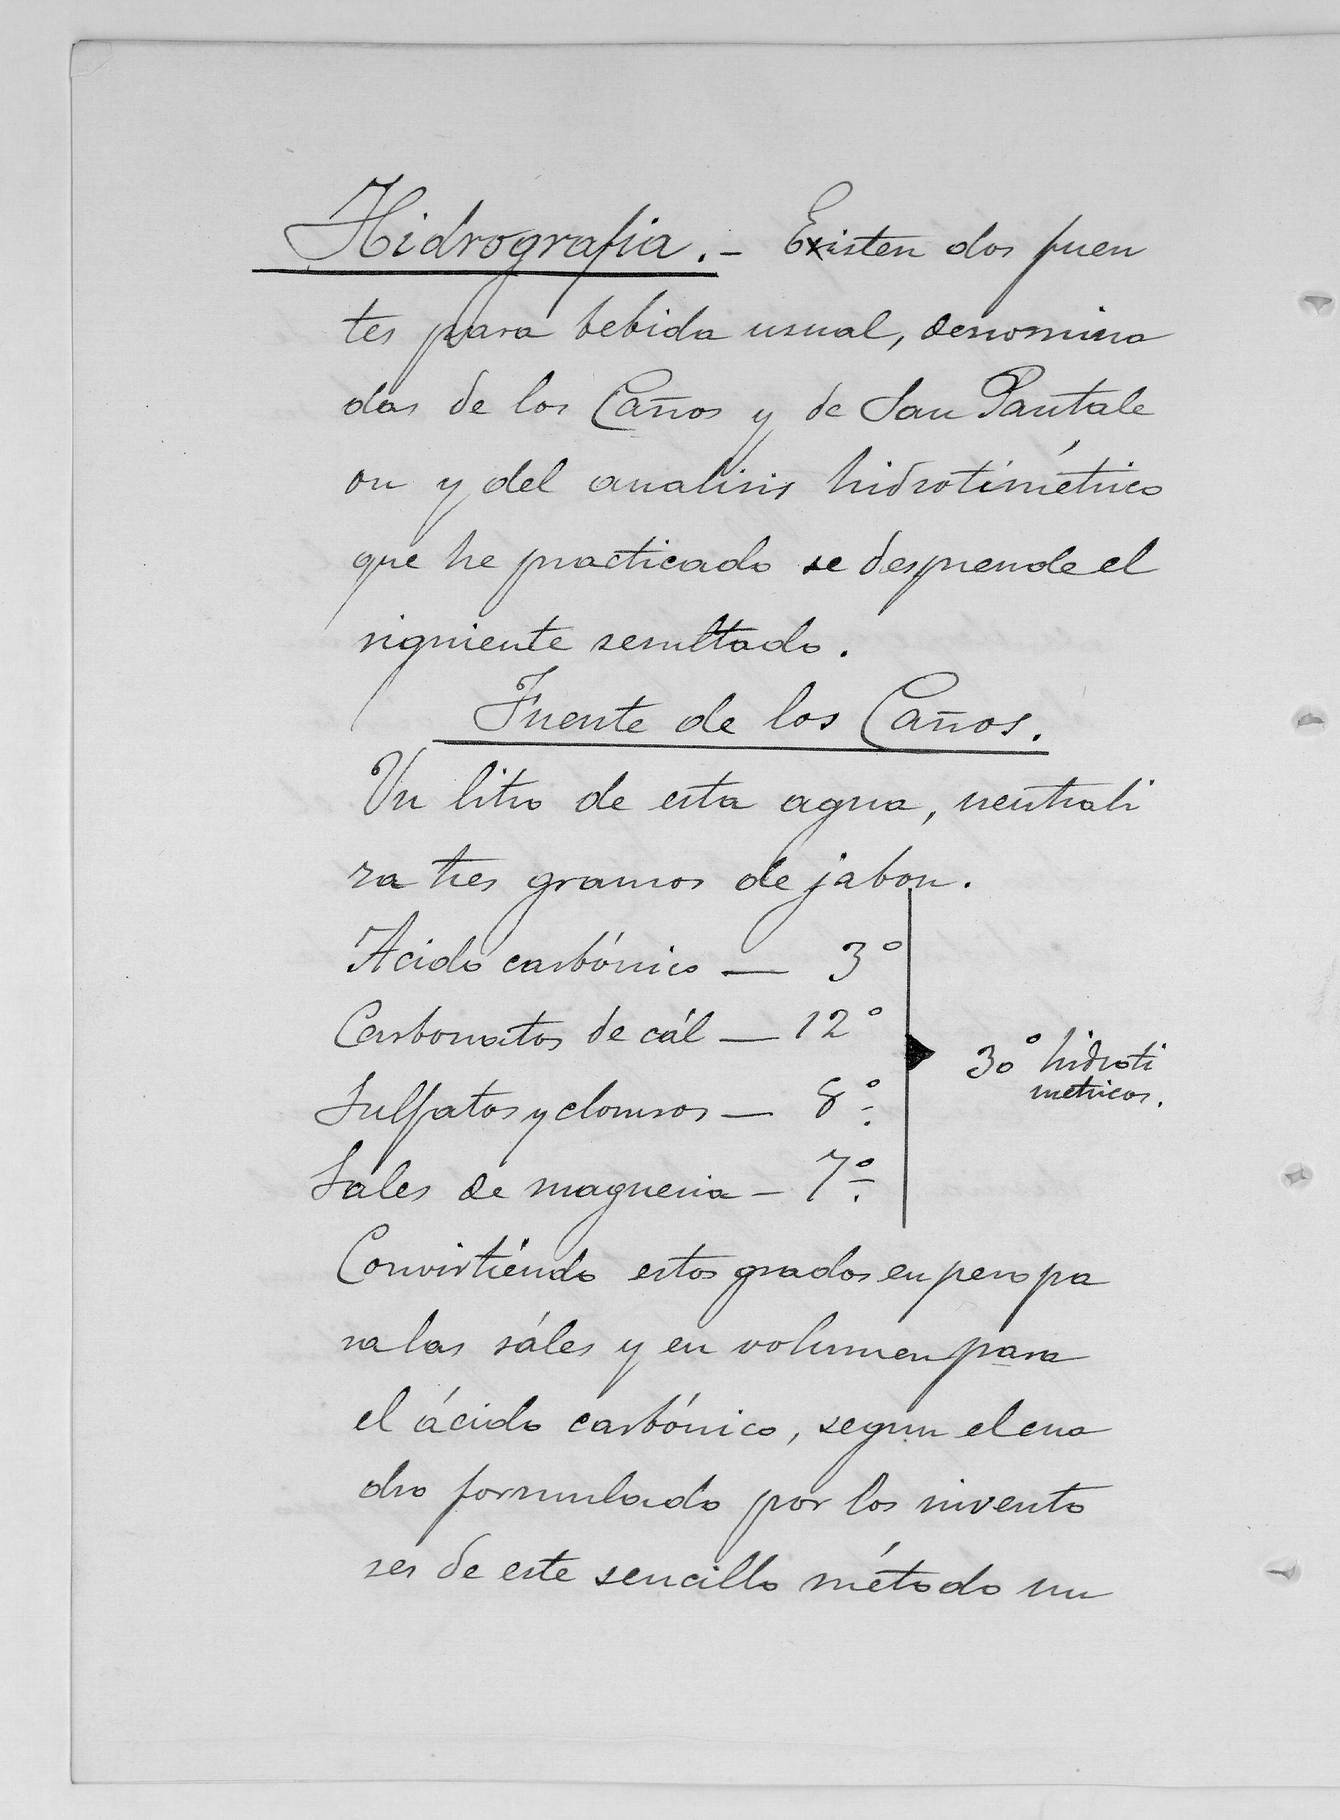 Hidrografia.- Existen dos fuen
tes para bebida usual, denomina
das de los Caños y de San Pantale
on y del analisis hidrotimétrico
que he practicado se desprende el
siguiente resultado.
Fuente de los Caños.
Un litro de esta agua, neutrali
za tres gramos de jabon.
Acido carbónico — 3°
Carbonatos de cál — 12°
Sulfatos y cloruros — 8°
Sales de magnesia — 7°
30° hidroti
metricos.
Convirtiéndo estos grados en peso pa
ra las sáles y en volumen para
el ácido carbónico, segun el cua
dro formulado por los invento
res de este sencillo método un